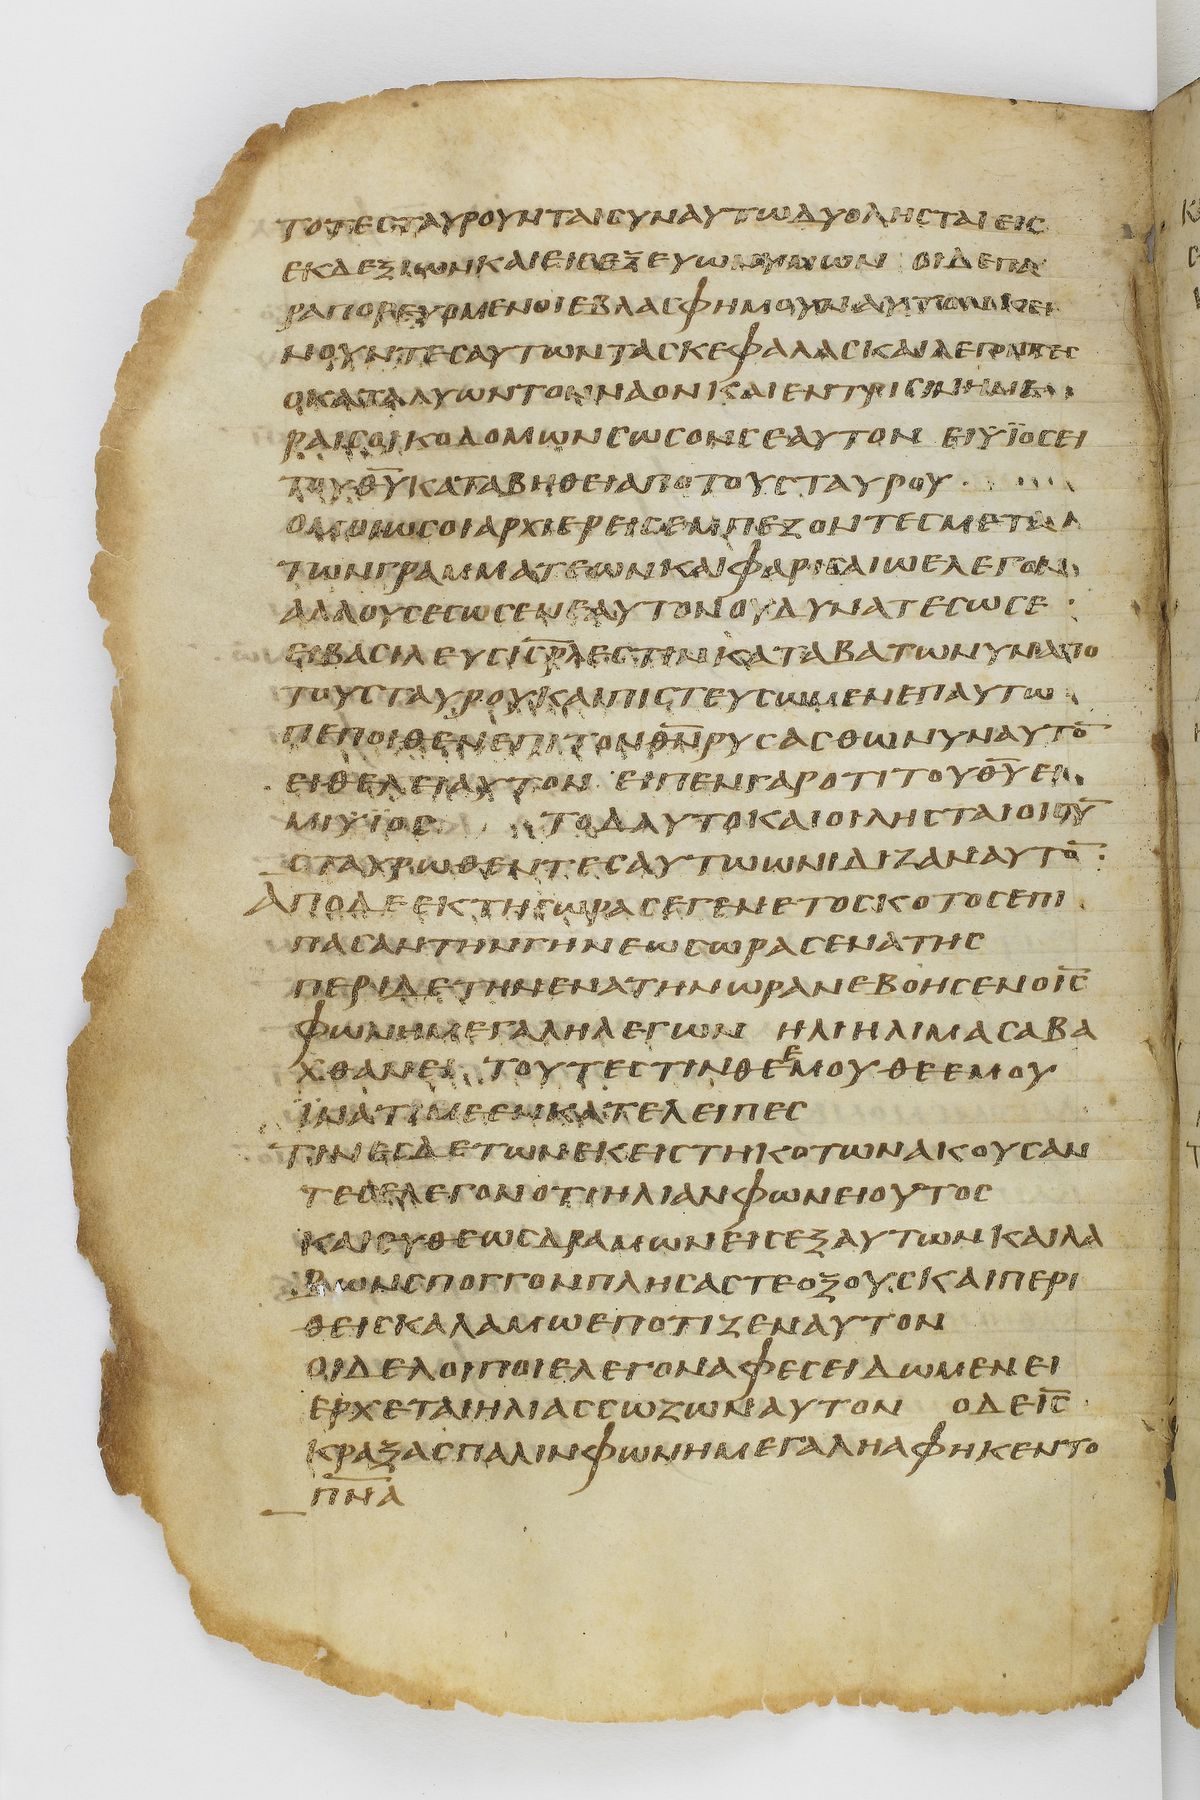 ΤΟΤΕCΤΑΥΡΟΥΝΤΑΙCΥΝΑΥΤΩΔΥΟΛΗCΤΑΙΕΙC
ΕΚΔΕΞΙΩΝΚΑΙΕΙCΕΞΕΥΩΝΥΜΩΝ ΟΙΔΕΠΑ
ΡΑΠΟΡΕΥΟΜΕΝΟΙΕΒΛΑCΦΗΜΟΥΝΑΥΤΟΝΚΕΙ
ΝΟΥΝΤΕCΑΥΤΩΝΤΑCΚΕΦΑΛΑCΚΑΙΛΕΓΟΝΤΕC
ΟΚΑΤΑΛΥΩΝΤΟΝΝΑΟΝΚΑΙΕΝΤΡΙCΙΝΗΜΕ
ΡΑΙCΟΙΚΟΔΟΜΩΝCΩCΟΝCΕΑΥΤΟΝ ΕΙΥΪΟCΕΙ
ΤΟΥΘ̅Υ̅ΚΑΤΑΒΗΘΕΙΑΠΟΤΟΥCΤΑΥΡΟΥ
ΟΜΟΙΩCΟΙΑΡΧΙΕΡΕΙCΕΜΠΕΖΟΝΤΕCΜΕΤΑ
ΤΩΝΓΡΑΜΜΑΤΕΩΝΚΑΙΦΑΡΙCΑΙΩΕΛΕΓΟΝ
ΑΛΛΟΥCΕCΩCΕΝΕΑΥΤΟΝΟΥΔΥΝΑΤΕCΩCΕ
ΕΙΒΑCΙΛΕΥCΙC̅Ρ̅Λ̅ΕCΤΙΝΚΑΤΑΒΑΤΩΝΥΝΑΠΟ
ΤΟΥCΤΑΥΡΟΥΚΑΙΠΙCΤΕΥCΩΜΕΝΕΠΑΥΤΩ
ΠΕΠΟΙΘΕΝΕΠΙΤΟΝΘ̅Ν̅ΡΥCΑCΘΩΝΥΝΑΥΤΟ̅
ΕΙΘΕΛΕΙΑΥΤΟΝ ΕΙΠΕΝΓΑΡΟΤΙΤΟΥΘ̅Υ̅ΕΙ
ΜΙΥΪΟC ΤΟΔΑΥΤΟΚΑΙΟΙΛΗCΤΑΙΟΙCΥ̅
CΤΑΥΡΩΘΕΝΤΕCΑΥΤΩΩΝΙΔΙΖΑΝΑΥΤΟ̅
ΑΠΟΔΕΕΚΤΗCΩΡΑCΕΓΕΝΕΤΟCΚΟΤΟCΕΠΙ
ΠΑCΑΝΤΗΝΓΗΝΕΩCΩΡΑCΕΝΑΤΗC
ΠΕΡΙΔΕΤΗΝΕΝΑΤΗΝΩΡΑΝΕΒΟΗCΕΝΟΙ̅C̅
ΦΩΝΗΜΕΓΑΛΗΛΕΓΩΝ ΗΛΙΗΛΙΜΑCΑΒΑ
ΧΘΑΝΕΙ ΤΟΥΤΕCΤΙΝΘΕΕΜΟΥΘΕΕΜΟΥ
ΪΝΑΤΙΜΕΕΝΚΑΤΕΛΕΙΠΕC
ΤΙΝΕCΔΕΤΩΝΕΚΕΙCΤΗΚΟΤΩΝΑΚΟΥCΑΝ
ΤΕCΕΛΕΓΟΝΟΤΙΗΛΙΑΝΦΩΝΕΙΟΥΤΟC
ΚΑΙΕΥΘΕΩCΔΡΑΜΩΝΕΙCΕΞΑΥΤΩΝΚΑΙΛΑ
ΒΩΝCΠΟΓΓΟΝΠΛΗCΑCΤΕΟΞΟΥCΚΑΙΠΕΡΙ
ΘΕΙCΚΑΛΑΜΩΕΠΟΤΙΖΕΝΑΥΤΟΝ
ΟΙΔΕΛΟΙΠΟΙΕΛΕΓΟΝΑΦΕCΕΙΔΩΜΕΝΕΙ
ΕΡΧΕΤΑΙΗΛΙΑCCΩΖΩΝΑΥΤΟΝ ΟΔΕΙ̅C̅
ΚΡΑΞΑCΠΑΛΙΝΦΩΝΗΜΕΓΑΛΗΑΦΗΚΕΝΤΟ
Π̅Ν̅Α